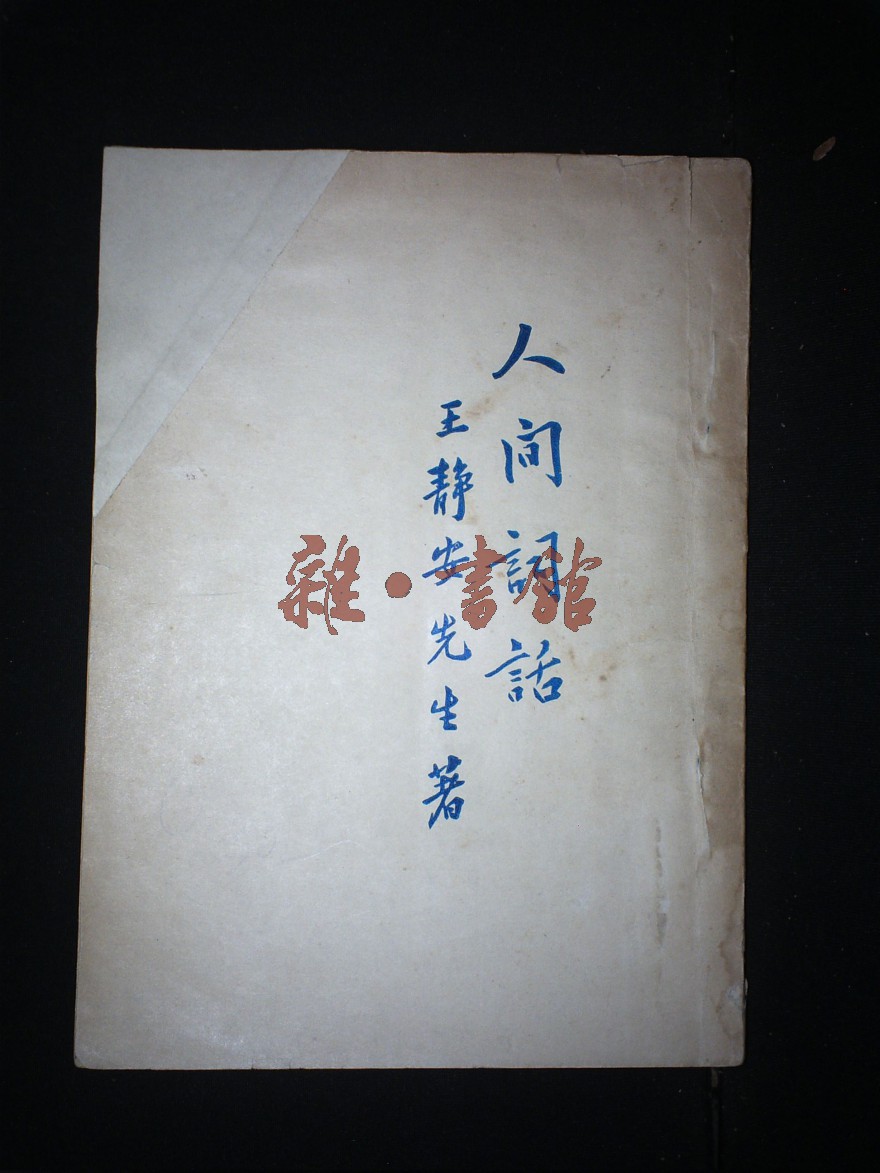 人间詞話
王静安先生著
雜·書館